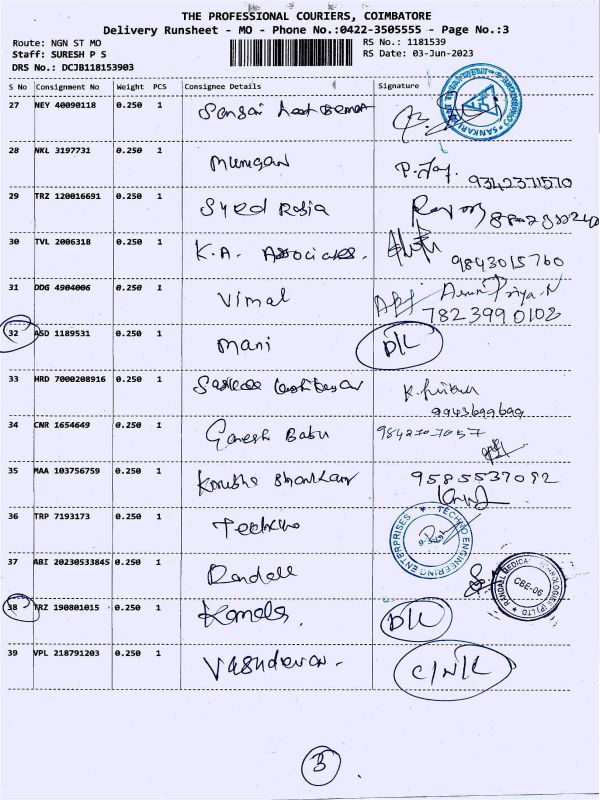 THE PROFESSIONAL COURIERS, COIMBATORE
Delivery Runsheet - MO - Phone No.:0422-3505555 - Page No.:3
Route: NGN ST MO
Staff: SURESH P S
DRS No.: DCJB118153903
RS No.: 1181539
RS Date: 03-Jun-2023
S No Consignment No Weight PCS Consignee Details Signature
27 NEY 40090118 0.250 1
28 NKL 3197731 0.250 1 Murugan 9342371570
29 TRZ 120016691 0.250 1 Syed Rajia
30 TVL 2006318 0.250 1 K.A. Associates. 9843015760
31 DDG 4904006 0.250 1 Vimal Arun Priya.N
7823990102
32 ASD 1189531 0.250 1 Mani D/L
33 HRD 7000208916 0.250 1
9943699699
34 CNR 1654649 0.250 1 Ganesh Babu 9842707057
35 MAA 103756759 0.250 1 9585537092
36 TRP 7193173 0.250 1 Techno
TECHNO ENGINEERING ENTERPRISES
37 ABI 20230533845 0.250 1 Randall
CBE-06
38 TRZ 190801015 0.250 1 Kamala. D/L
39 VPL 218791203 0.250 1 Vasudevan. C/N/L
3